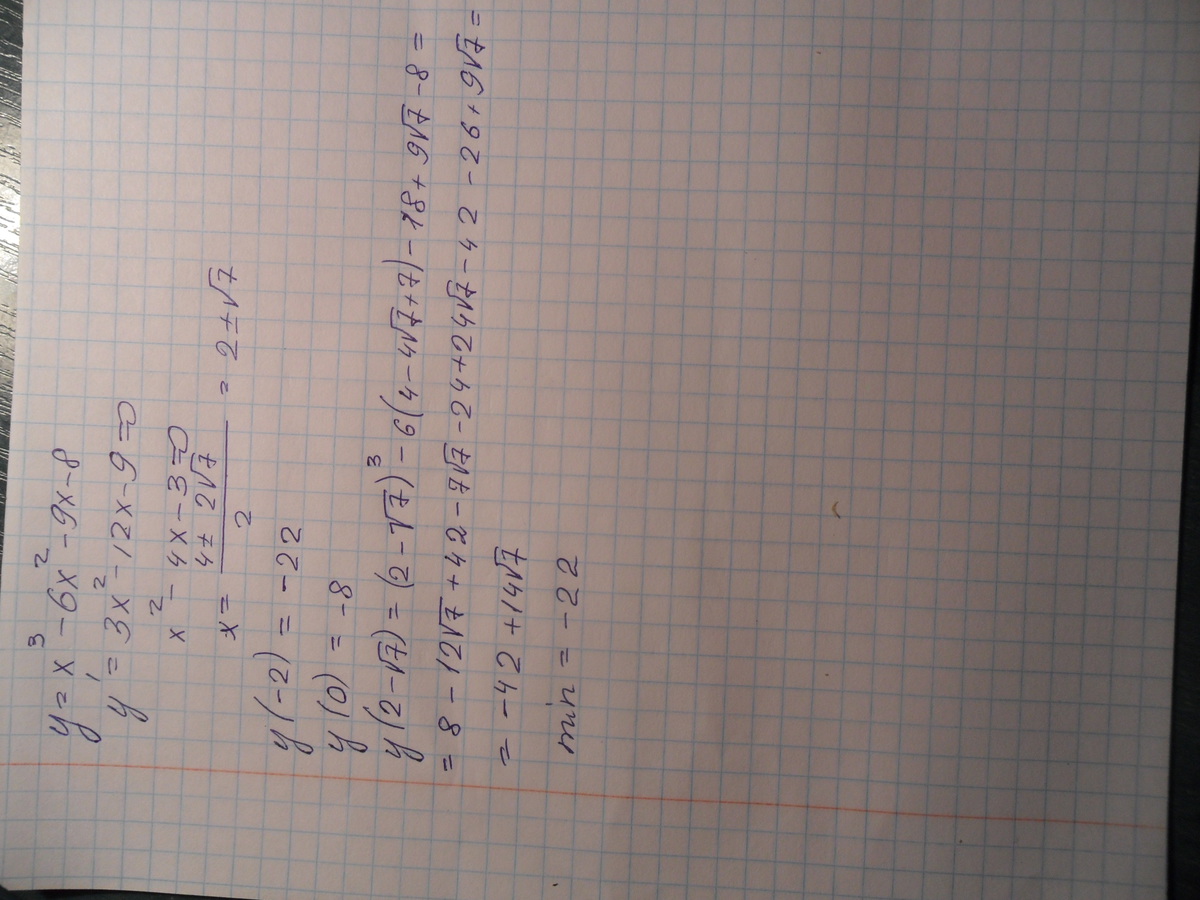 y = x³ - 6x² - 9x - 8
y' = 3x² - 12x - 9 = 0
x² - 4x - 3 = 0
x = (4 ± 2√7)/2 = 2 ± √7
y(-2) = -22
y(0) = -8
y(2-√7) = (2-√7)³ - 6(4-4√7+7) - 18 + 9√7 - 8 =
= 8 - 12√7 + 42 - 7√7 - 24 + 24√7 - 42 - 26 + 9√7 =
= -42 + 14√7
min = -22